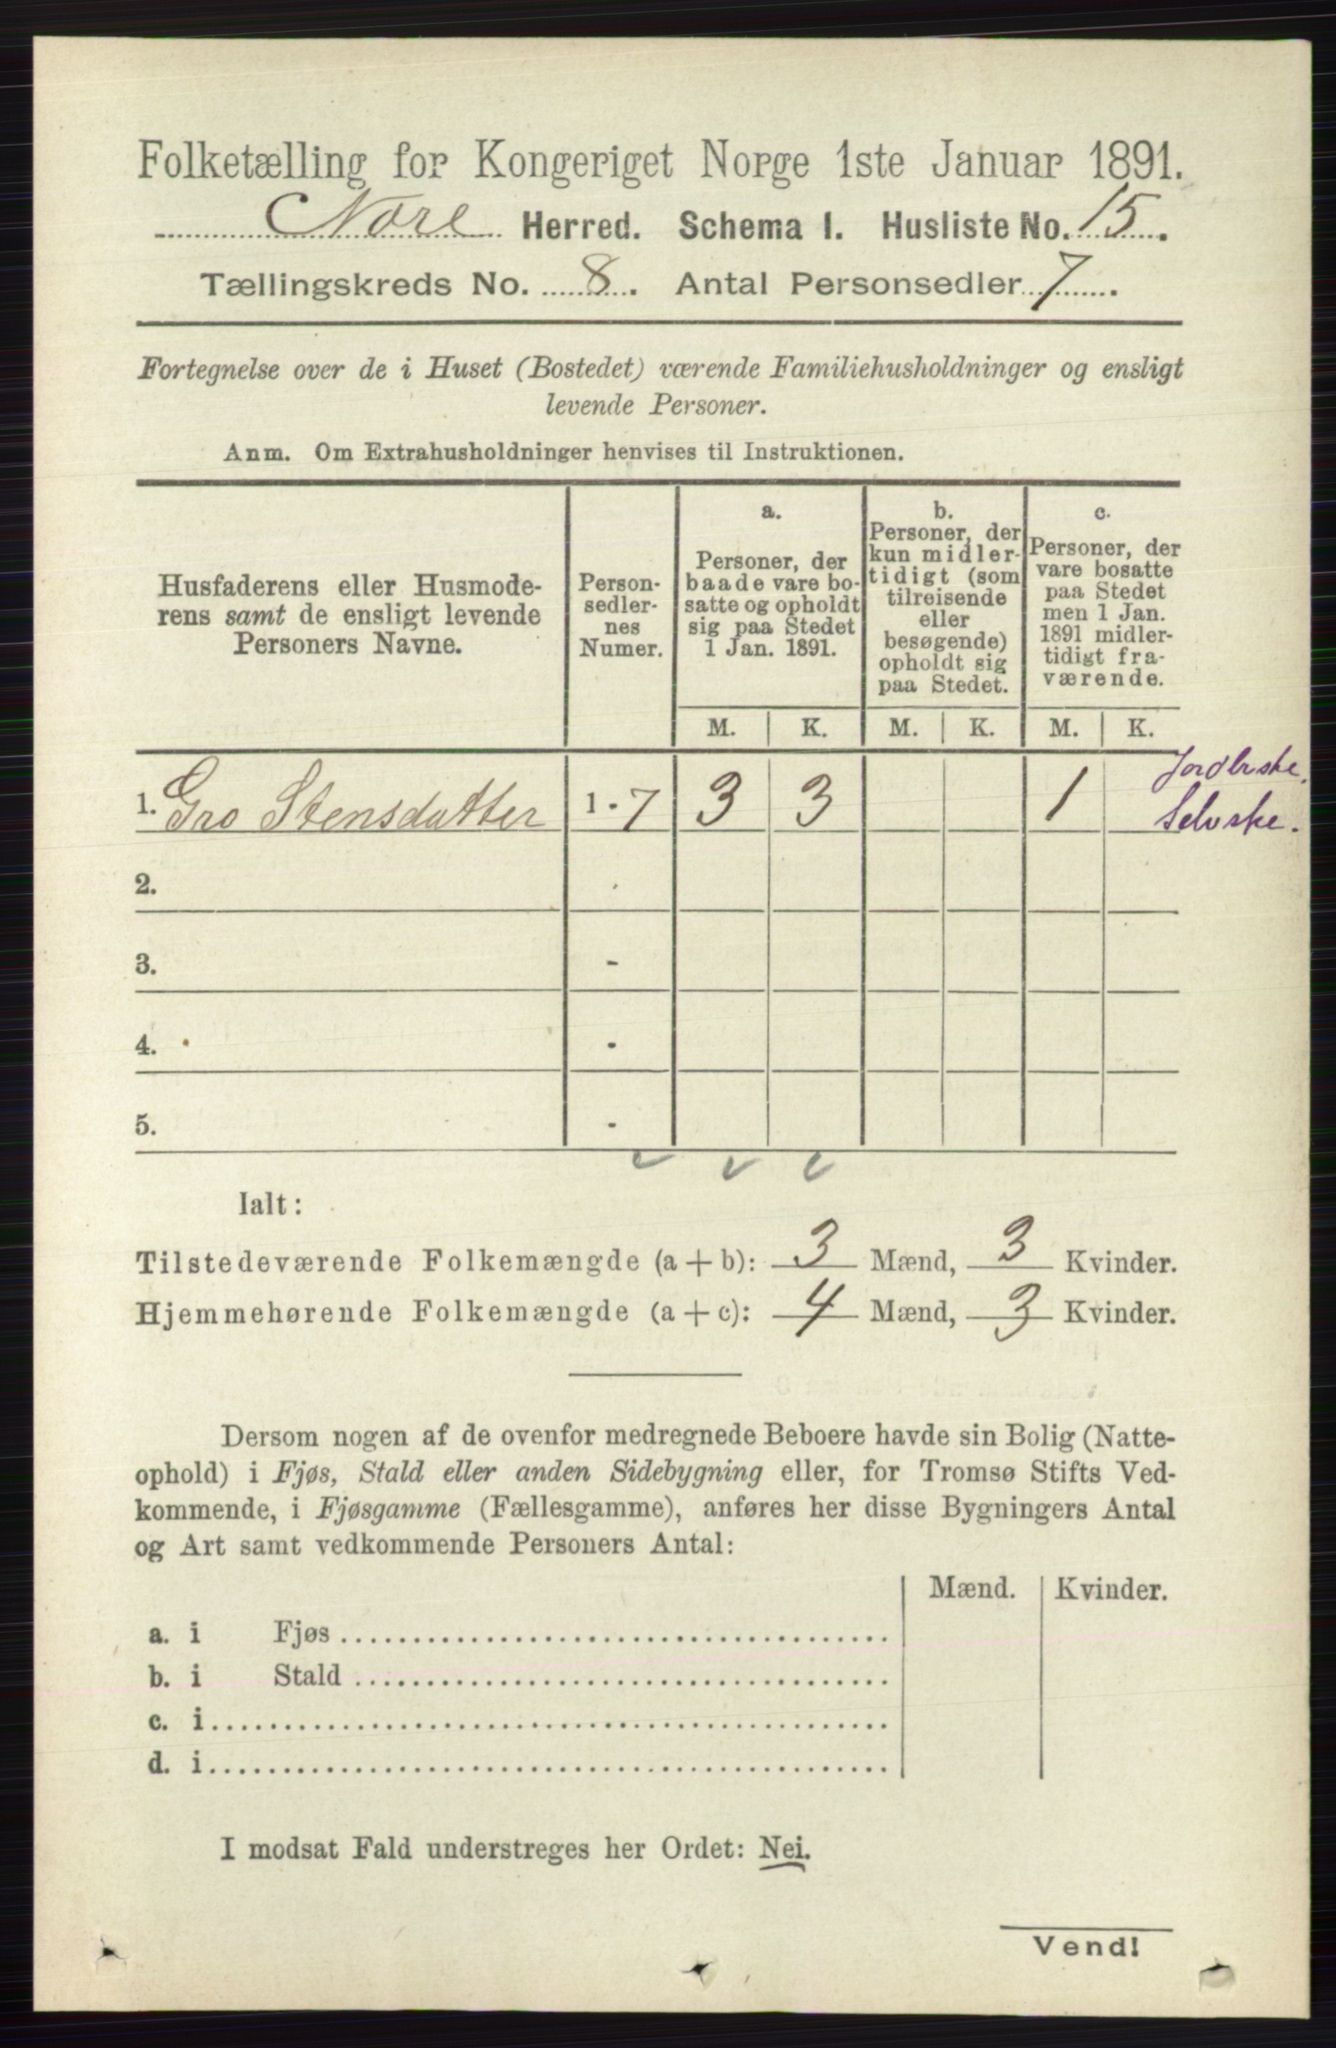 Folketælling for Kongeriget Norge 1ste Januar 1891.
Nore Herred. Schema I. Husliste No. 15.
Tællingskreds No. 8. Antal Personsedler 7.
Fortegnelse over de i Huset (Bostedet) værende Familiehusholdninger og ensligt
levende Personer.
Anm. Om Extrahusholdninger henvises til Instruktionen.
Husfaderens eller Husmode-
rens samt de ensligt levende
Personers Navne.
Person-
sedler-
nes
Numer.
a.
Personer, der
baade vare bo-
satte og opholdt
sig paa Stedet
1 Jan. 1891.
b.
Personer, der
kun midler-
tidigt (som
tilreisende
eller
besøgende)
opholdt sig
paa Stedet.
c.
Personer, der
vare bosatte
paa Stedet
men 1 Jan.
1891 midler-
tidigt fra-
værende.
M. K. M. K. M. K.
1. Gro Stensdatter 1 - 7 3 3 1
Jordbrske.
Selvske.
2. -
3. -
4. -
5. -
Ialt:
Tilstedeværende Folkemængde (a + b): 3 Mænd, 3 Kvinder.
Hjemmehørende Folkemængde (a + c): 4 Mænd, 3 Kvinder.
Dersom nogen af de ovenfor medregnede Beboere havde sin Bolig (Natte-
ophold) i Fjøs, Stald eller anden Sidebygning eller, for Tromsø Stifts Ved-
kommende, i Fjøsgamme (Fællesgamme), anføres her disse Bygningers Antal
og Art samt vedkommende Personers Antal:
Mænd. Kvinder.
a. i Fjøs
b. i Stald
c. i
d. i
I modsat Fald understreges her Ordet: Nei.
Vend!